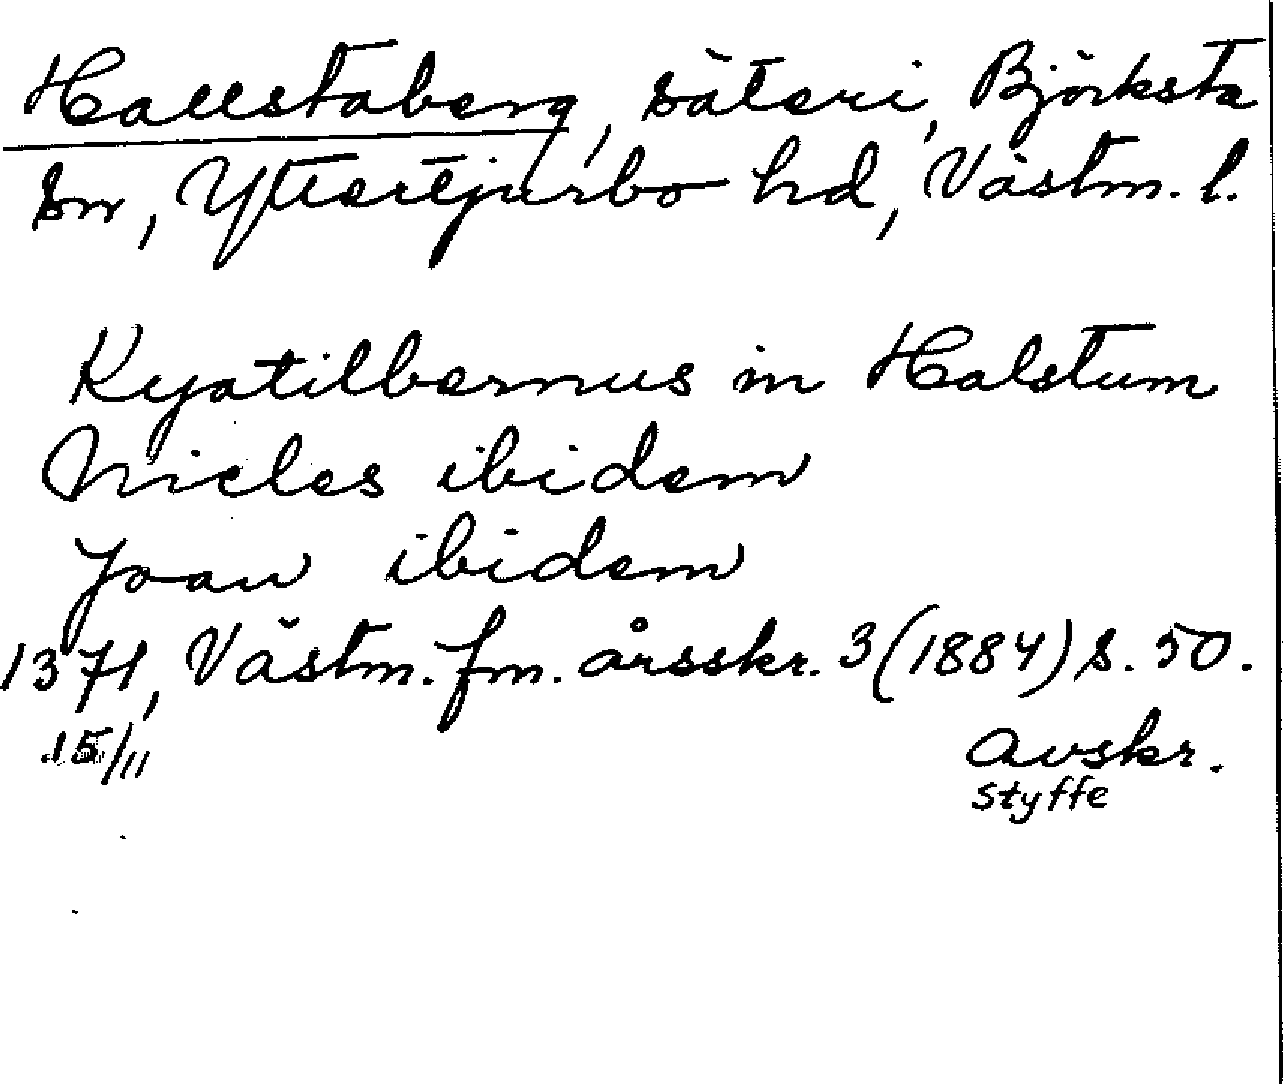 Hallstaberg, säteri, Björksta
sn, Yttertjurbo hd, Västm. l.
Kyatilbernus in Halstum
Nicles ibidem
Joan ibidem
1371, Västm. fm. årsskr. 3 (1884) s. 50.
15/11 avskr.
Styffe